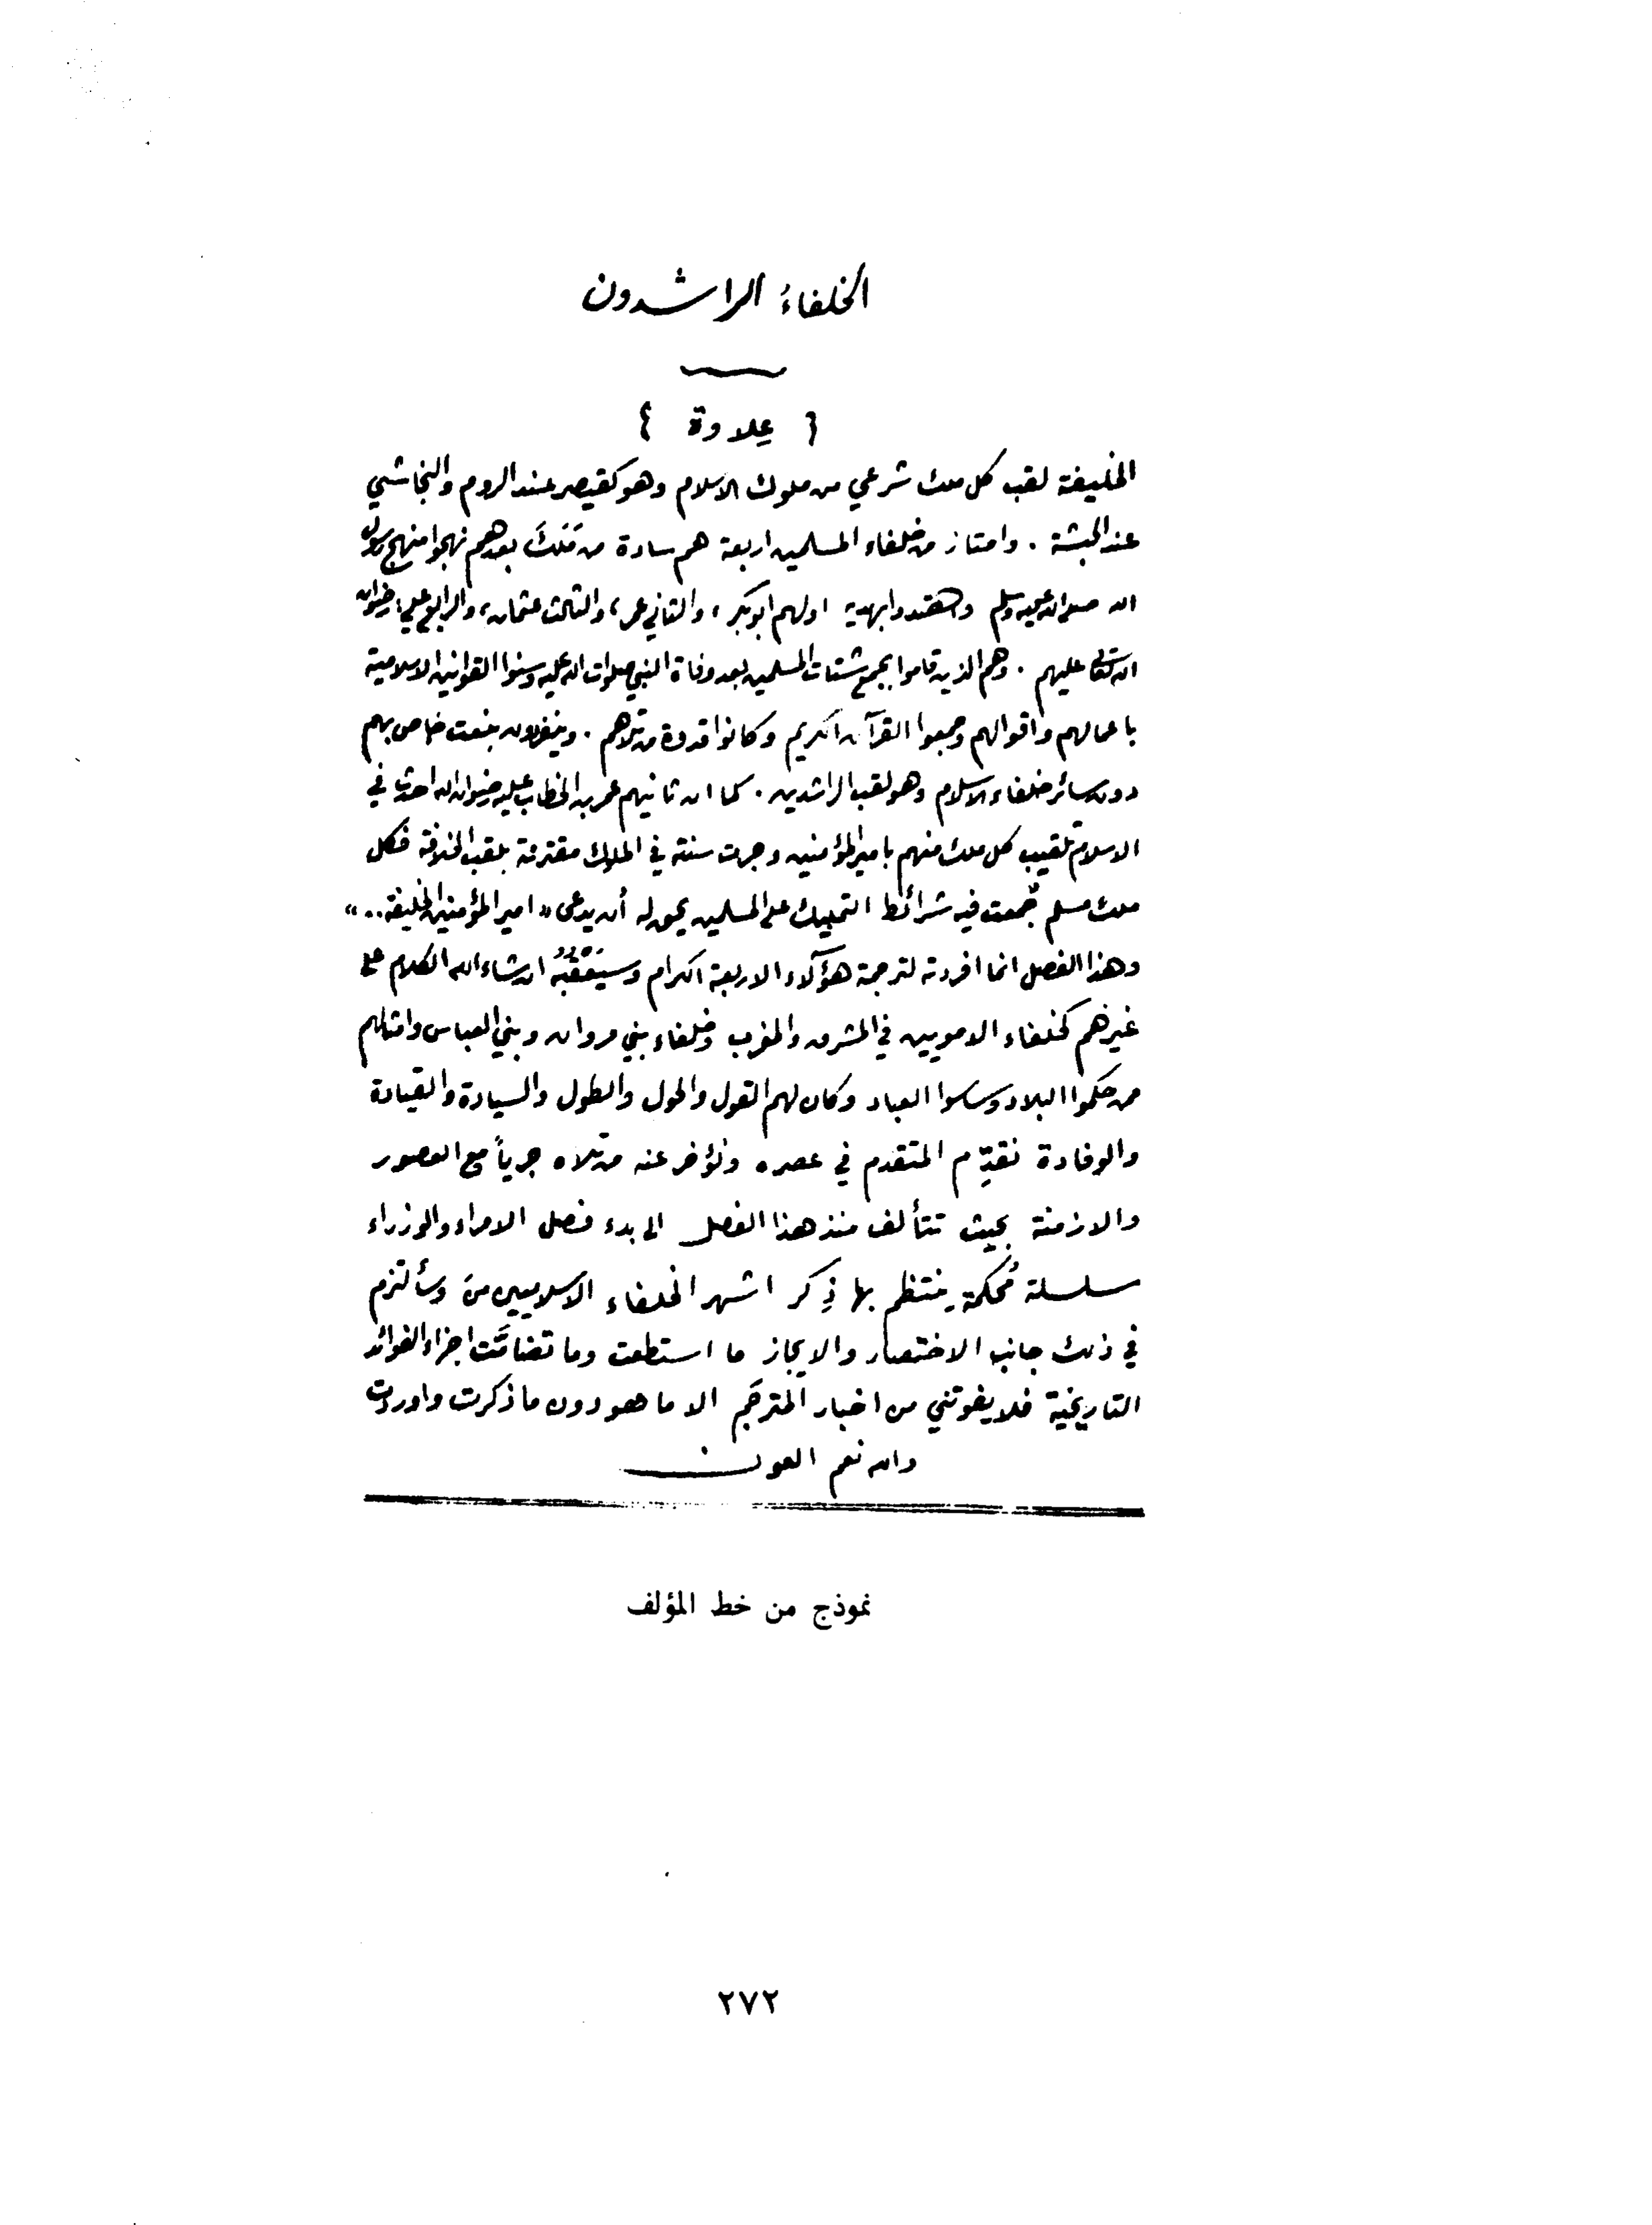 الخلفاءُ الراشدون
{ عِلاوة }
الخليفة لقب كل ملك شرعي من ملوك الاسلام وهو كقيصر عند الروم والنجاشي
عند الحبشة . وامتاز من خلفاء المسلمين اربعة هم سادة من مَلَكَ بعدهم نهجوا منهج رسول
الله صلى الله عليه وسلم واهتدوا بهديه اولهم ابو بكر ، والثاني عمر ، والثالث عثمان ، والرابع علي ، رضوان
الله تعالى عليهم . وهم الذين قاموا بجمع شتات المسلمين بعد وفاة النبي صلوات الله عليه وسنوا القوانين الاسلامية
باعمالهم واقوالهم وجمعوا القرآن الكريم وكانوا قدوة من تلاهم . وينفردون بنعت خاص بهم
دون سائر خلفاء الاسلام وهو لقب الراشدين . كما ان ثانيهم عمر بن الخطاب عليه رضوان الله احدث في
الاسلام تلقيب كل ملك منهم بامير المؤمنين وجرت سنته في الملوك مقترنة بلقب الخلافة فكل
ملك مسلم جُمعت فيه شرائط التمليك على المسلمين يحق له أن يدعى « امير المؤمنين الخليفة .. »
وهذا الفصل انما افردته لترجمة هؤلآء الاربعة الكرام وسيَعْقُبُهُ ان شاء الله الكلام على
غيرهم كخلفاء الامويين في المشرق والمغرب وخلفاء بني مروان وبني العباس وامثالهم
ممن حكموا البلاد وساسوا العباد وكان لهم القول والحول والطول والسيادة والقيادة
والوفادة نقدِّم المتقدم في عصره ونؤخر عنه من تلاه جرياً مع العصور
والازمنة بحيث تتألف منذ هذا الفصل الى بدء فصل الامراء والوزراء
سلسلة مُحكمة ينتظم بها ذِكر اشهر الخلفاء الاسلاميين وسألتزم
في ذلك جانب الاختصار والايجاز ما استطعت وما تضامَّت اجزاء الفوائد
التاريخية فلا يفوتني من اخبار المترجَم الا ما هو دون ما ذكرت واوردت
والله نعم العون
نموذج من خط المؤلف
٢٧٢